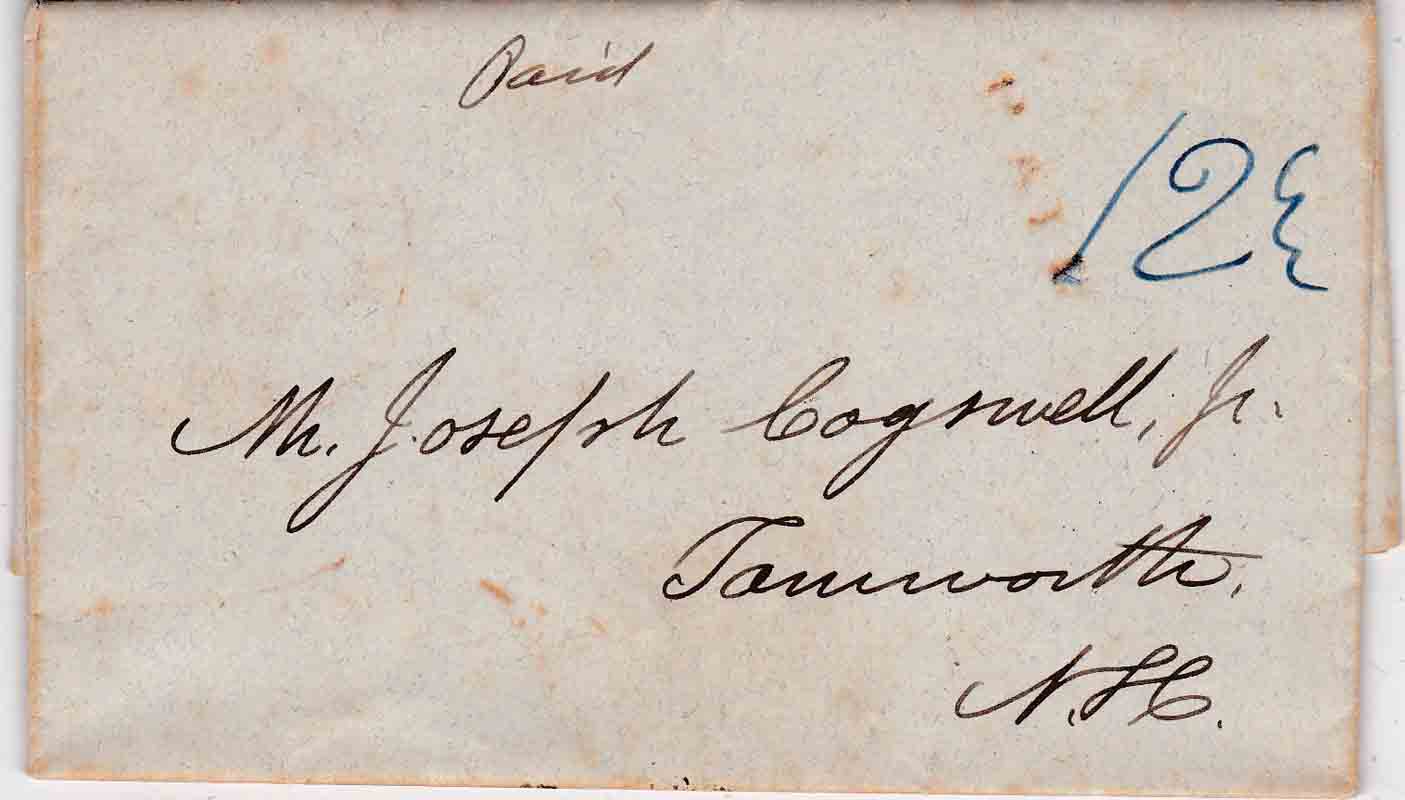 Paid
12½
Mr. Joseph Cogswell, Jr.
Tamworth,
N.H.